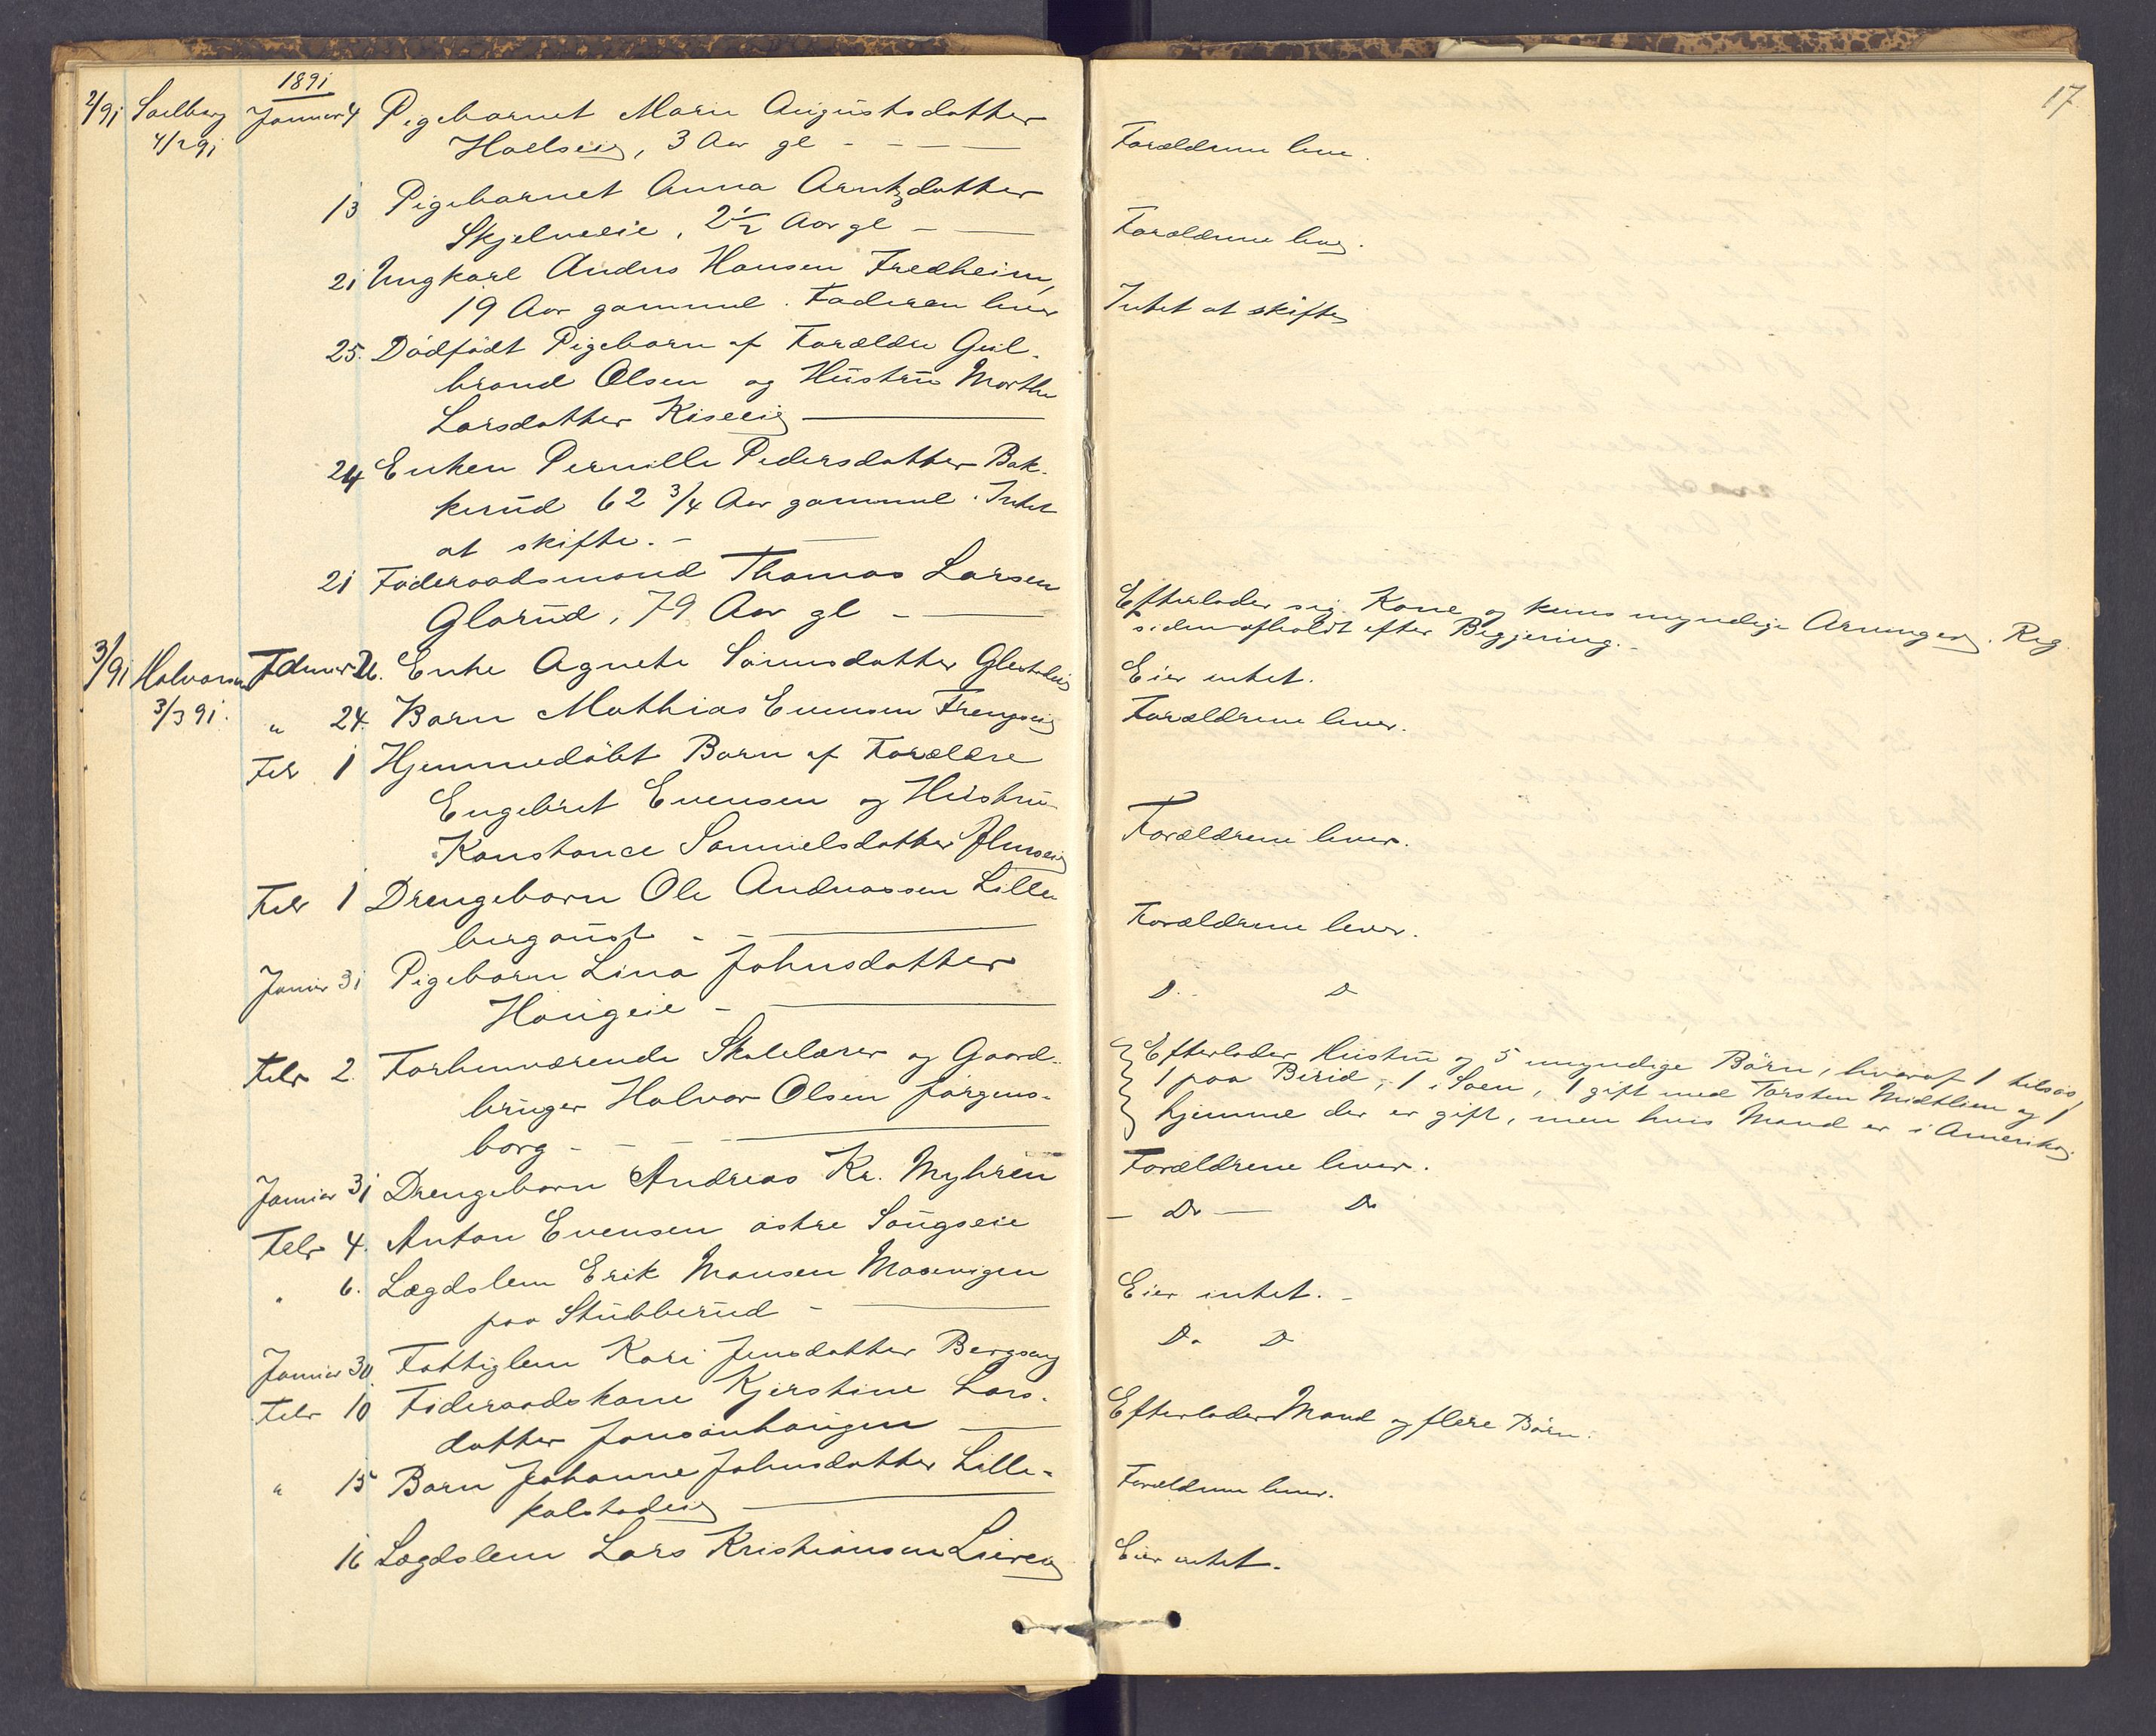 17
1891
2/91 Saelberg Januar 4 Pigebarnet Marie Augustsdatter
4/2 91 Hoelseie, 3 Aar gl - - — — Forældrene leve.
13 Pigebarnet Anna Arntzdatter
Skjelveeie, 2 1/2 Aar gl - — Forældrene leve.
21 Ungkarl Andres Hansen Fredheim,
19 Aar gammel. Faderen lever Intet at skifte
25. Dødfødt Pigebarn af Forældre Gul-
brand Olsen og Hustru Marthe
Larsdatter Kiseeie —
24 Enken Pernille Pedersdatter Bak-
kerud 62 3/4 Aar gammel. Intet
at skifte. - —
21 Føderaadsmand Thomas Larsen
Glarud, 79 Aar gl - — Efterlader sig Kone og kuns myndige Arvinger. Reg
siden afholdt efter Begjering. -
3/91 Halvorsen Februar Enke Agnete Sørensdatter Eier intet.
3/3 91. " 24. Barn Mathias Evensen Forældrene lever.
Febr 1 Hjemmedøbt Barn af Forældre
Engebret Evensen og Hustru
Konstance Samuelsdatter Forældrene lever.
Febr 1 Drengebarn Ole Andreassen Lille
bergaust - - — Forældrene lever.
Januar 31 Pigebarn Lina Johnsdatter
Haugeie - — D. D
Febr 2. Forhenværende Skolelærer og Gaard-
bruger Halvor Olsen Jørgens-
borg - — — Efterlader Hustru og 5 myndige Børn, hvoraf 1 tilsøs,
1 paa Birid, 1 i Soen, 1 gift med Torsten Midtlien og 1
hjemme der er gift, men hvis Mand er i Amerika.
Januar 31 Drengebarn Andreas Kr. Myhren Forældrene lever.
Febr 4. Anton Evensen østre Saugseie — Do — Do
" 6. Lægdslem Erik Mansen
paa Stubberud - — Eier intet. -
Januar 30 Fattiglem Kari Jensdatter Bergseng Do D
Febr 10 Føderaadskone Kjerstine Lars-
datter — Efterlader Mand og flere Børn.
" 15 Barn Johanne Johnsdatter Lille-
kalstadeie — Forældrene lever.
16 Lægdslem Lars Kristiansen Eier intet.